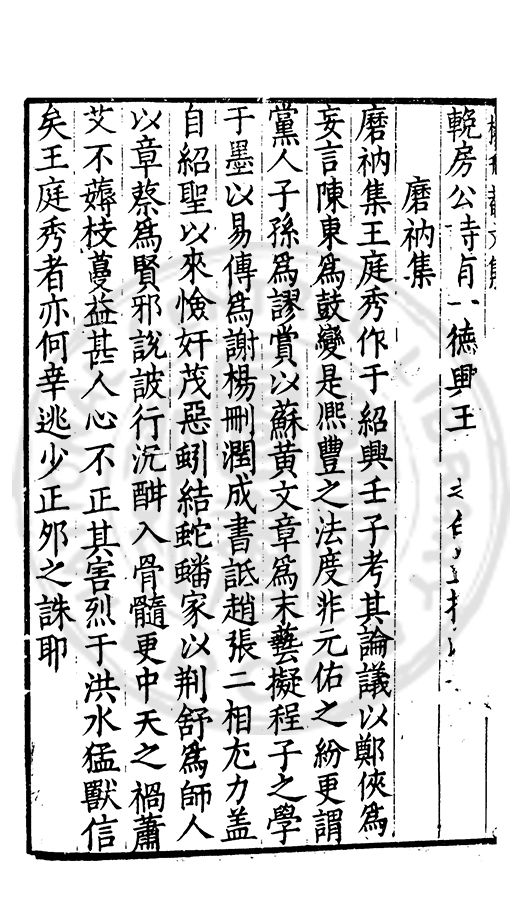 輓房公詩有一德興王
磨衲集
磨衲集王庭秀作于紹興壬子考其論議以鄭俠爲
妄言陳東爲鼓變是熈豐之法度非元佑之紛更謂
黨人子孫爲謬賞以蘇黃文章爲末藝擬程子之學
于墨以易傳爲謝楊刪潤成書詆趙張二相尤力盖
自紹聖以來憸奸茂惡蚓結蛇蟠家以荆舒爲師人
以章蔡爲賢邪說詖行沉酣入骨髓更中天之禍蕭
艾不薅枝蔓益甚人心不正其害烈于洪水猛獸信
矣王庭秀者亦何幸逃少正夘之誅耶